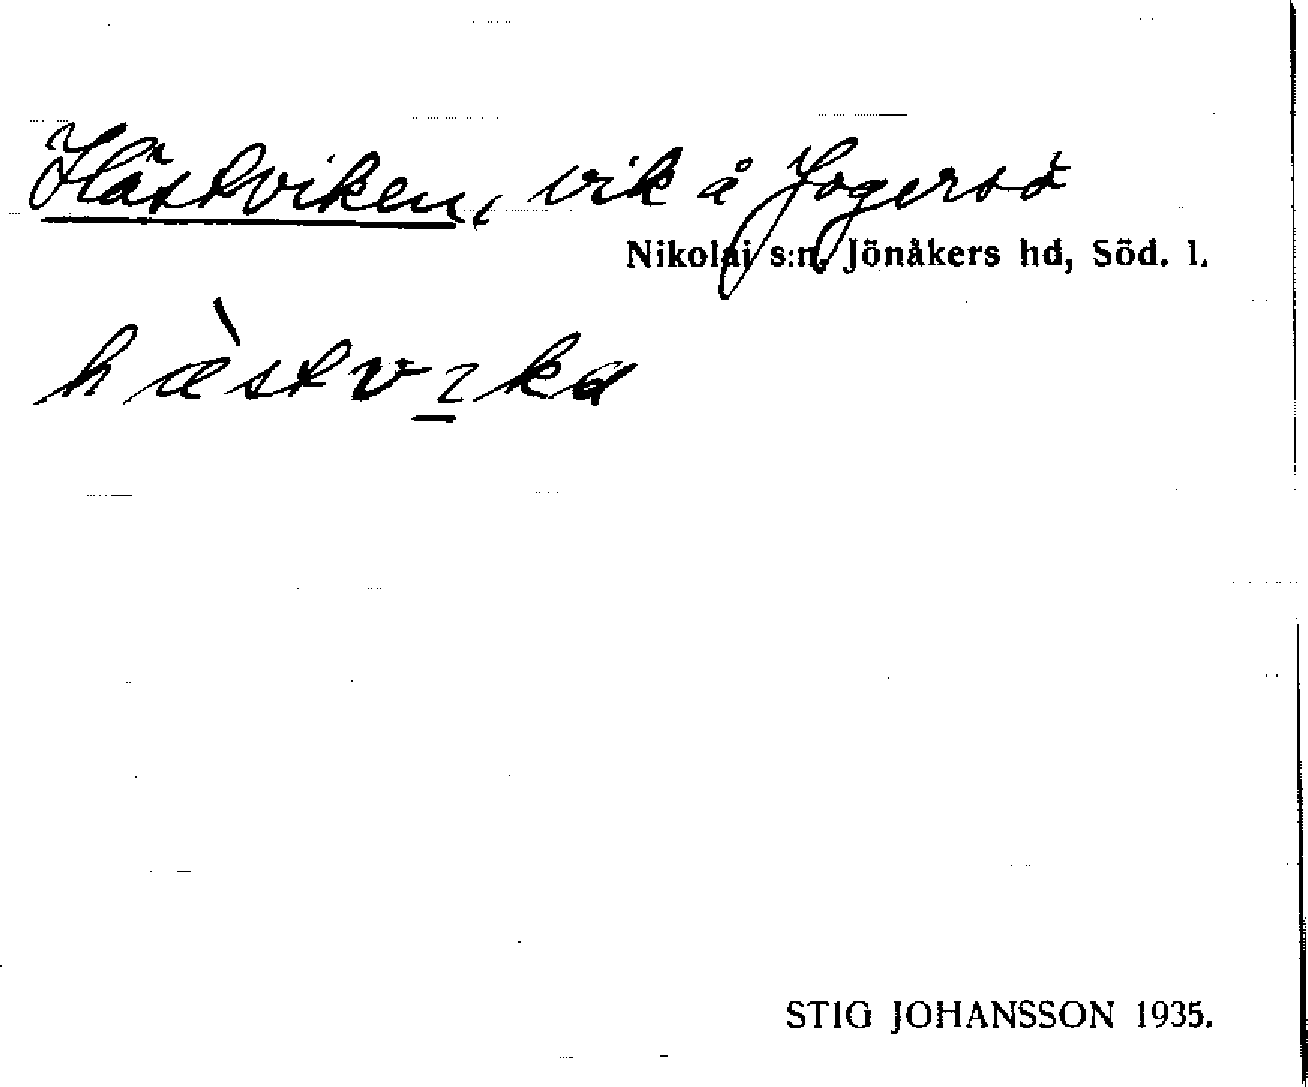 Hästviken, vik å Jogersö
Nikolai s:n, Jönåkers hd, Söd. l.
hæ̀stvıka
STIG JOHANSSON 1935.